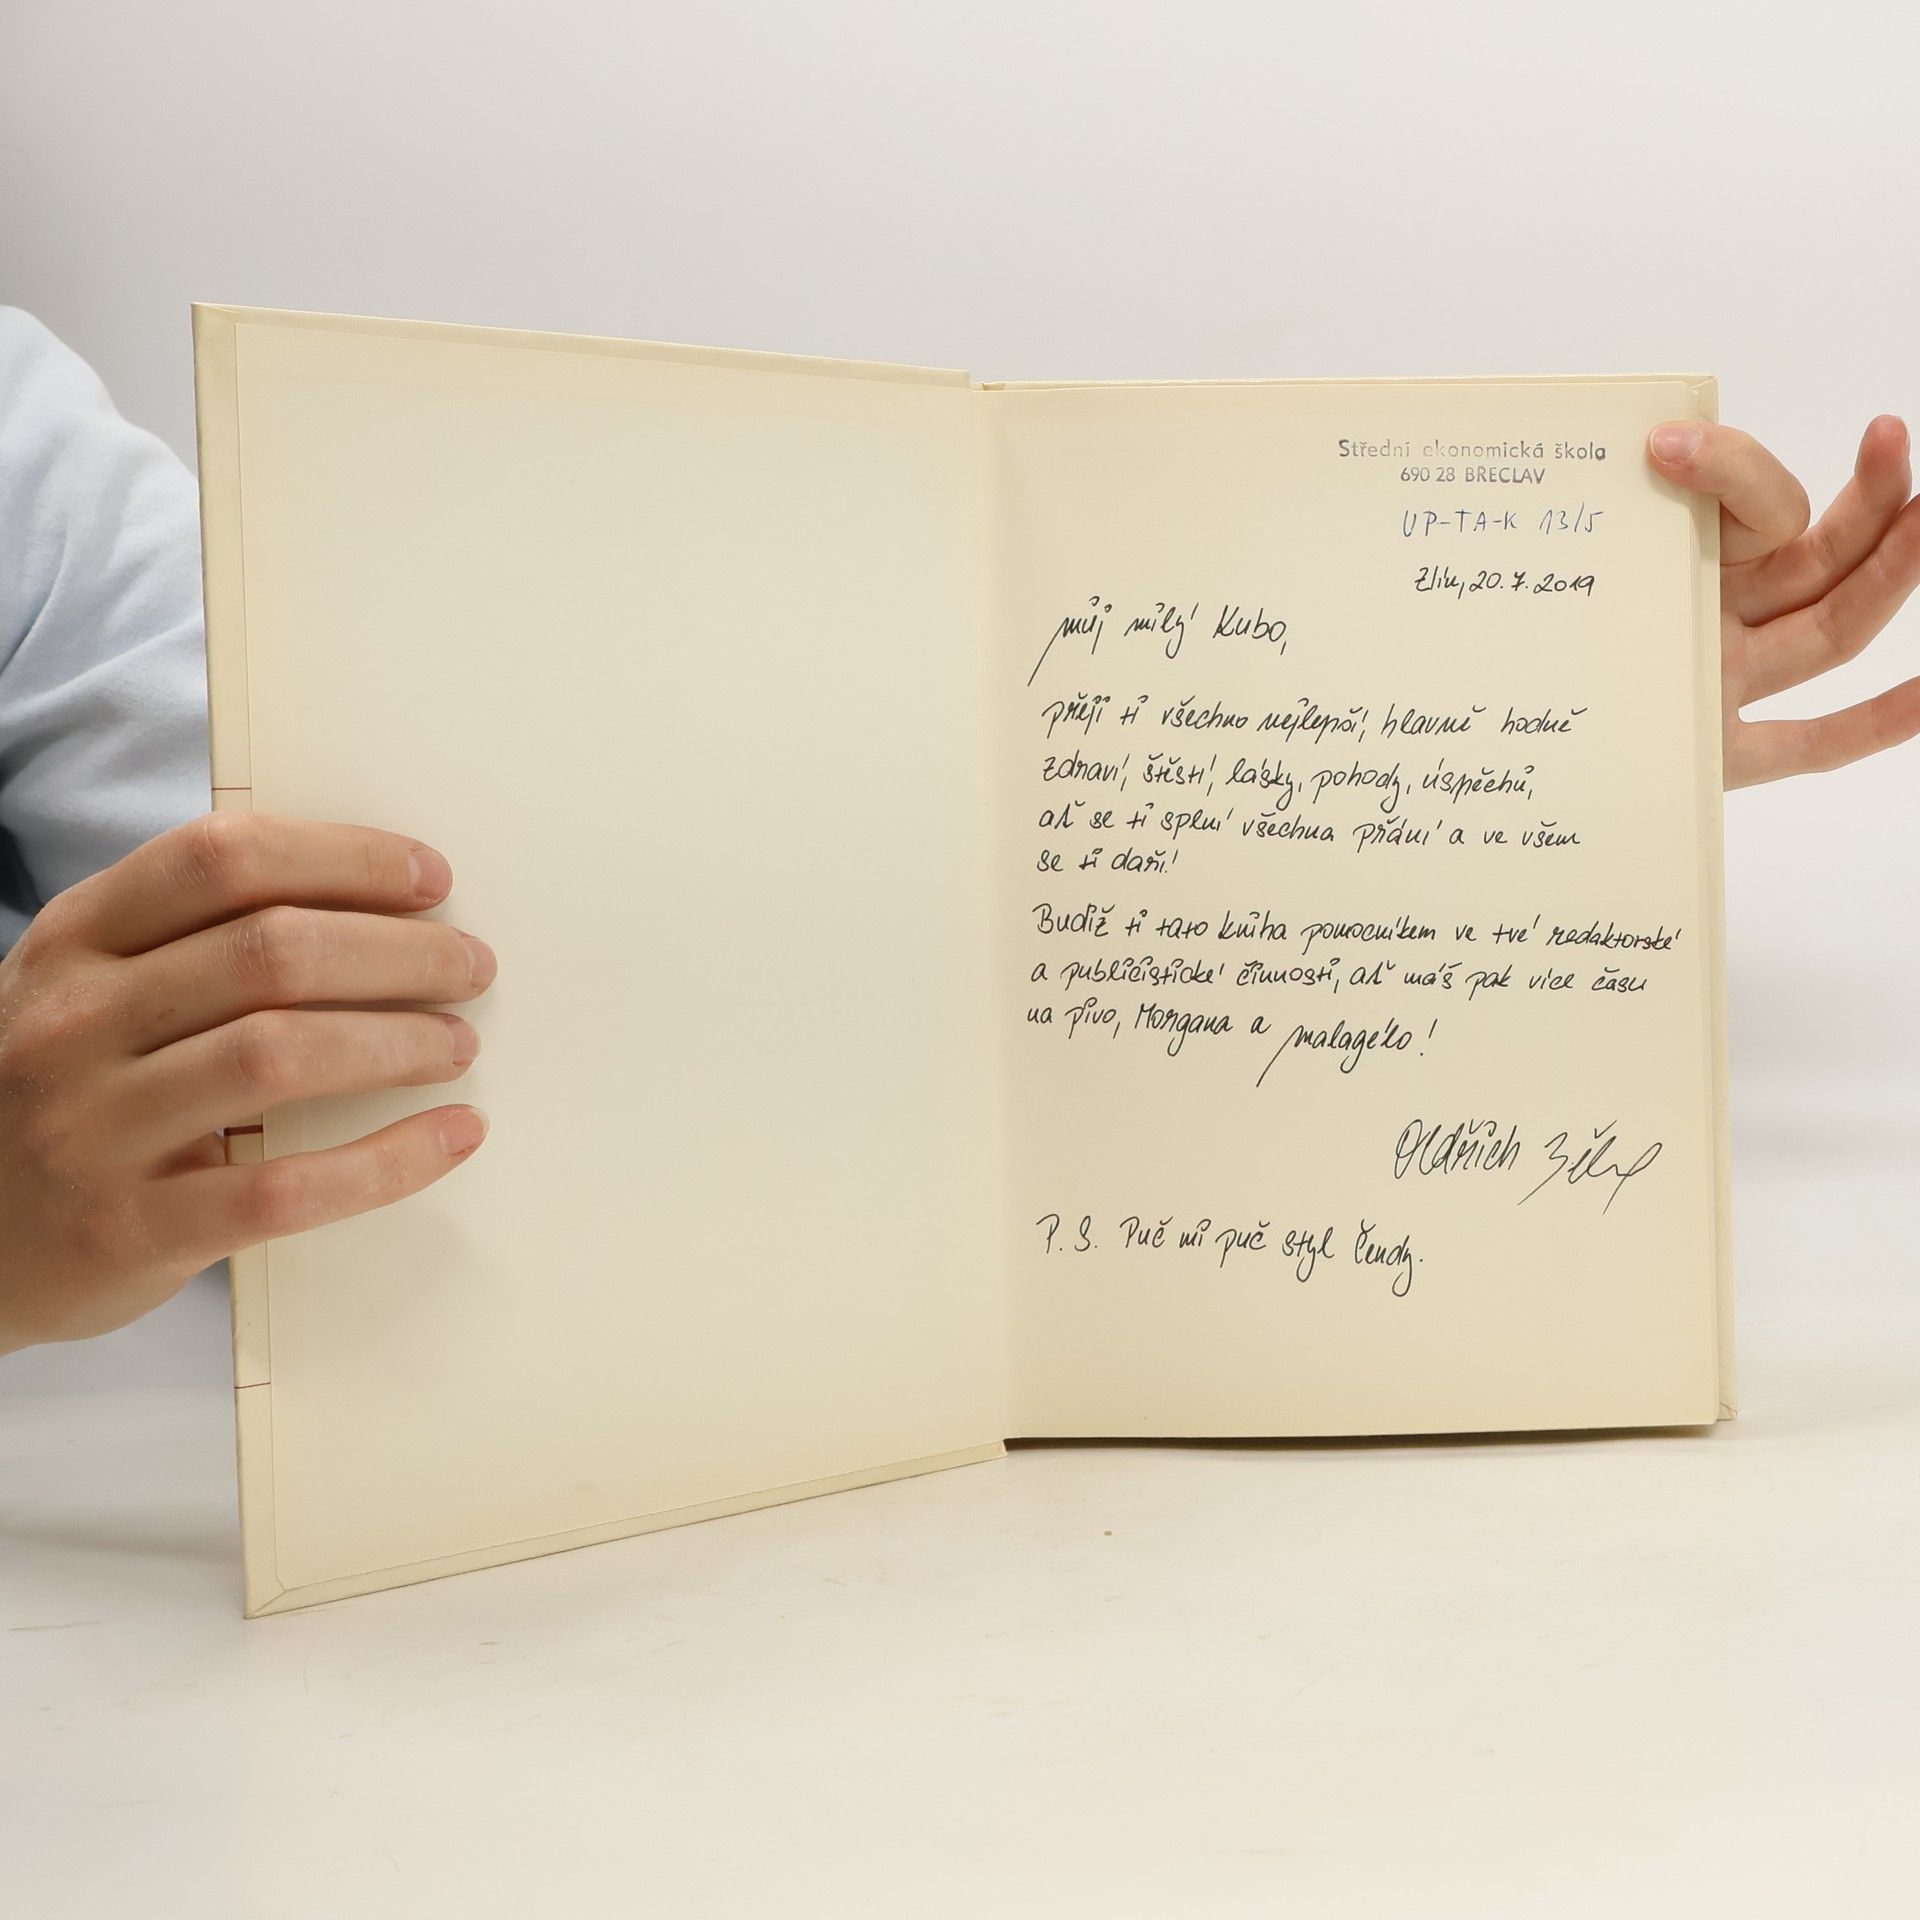 Střední ekonomická škola
690 28 BŘECLAV
UP-TA-K 13/5
Zlín, 20. 7. 2019
můj milý Kubo,
přeji ti všechno nejlepší, hlavně hodně
zdraví, štěstí, lásky, pohody, úspěchů,
ať se ti splní všechna přání a ve všem
se ti daří!
Budiž ti tato kniha pomocníkem ve tvé redaktorské
a publicistické činnosti, ať máš pak více času
na pivo, Morgana a malagelo!
Oldřich
P. S. Puč mi puč styl Čendy.